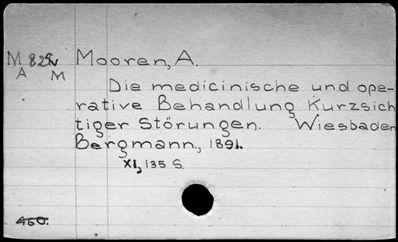 M 825v Mooren, A.
A M
Die medicinische und ope-
rative Behandlung Kurzsich
tiger Störungen. Wiesbaden
Bergmann, 1891.
XI, 135 S.
460.